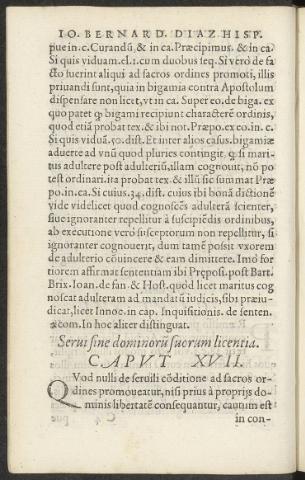 IO. BERNARD. DIAZ HISP.
pue in.c. Curandũ, & in ca. Præcipimus. & in ca.
Si quis viduam. el.1. cum duobus seq. Si vero de fa-
cto fuerint aliqui ad sacros ordines promoti, illis
priuandi sunt, quia in bigamia contra Apostolum
dispensare non licet, vt in ca. Super eo. de biga. ex
quo patet ꝙ bigami recipiunt characterẽ ordinis,
quod etiã probat tex. & ibi not. Præpo. ex eo. in. c.
Si quis viduã. 50. dist. Et inter alios casus. bigamiæ
aduerte ad vnũ quod pluries contingit. ꝙ si mari-
tus adulteræ post adulteriũ, illam cognouit, nõ po
test ordinari. ita probat tex. & illũ sic summat Præ
po. in. ca. Si cuius. 34. dist. cuius ibi bonã dictionẽ
vide videlicet quod cognoscẽs adulterã scienter,
siue ignoranter repellitur à suscipiẽdis ordinibus,
ab executione verò susceptorum non repellitur, si
ignoranter cognouerit, dum tamẽ possit vxorem
de adulterio cõuincere & eam dimittere. Imò for
tiorem affirmat sententiam ibi Preposi. post Bart.
Brix. Ioan. de fan. & Host. quòd licet maritus cog
noscat adulteram ad mandatũ iudicis, sibi præiu-
dicat, licet Innoc. in cap. Inquisitionis. de senten.
excom. In hoc aliter distinguat.
Serui sine dominorũ suorum licentia.
CAPVT XVII.
QVod nulli de seruili cõditione ad sacros or-
dines promoueatur, nisi prius à proprijs do-
minis libertatẽ consequantur, cautum est
in con-